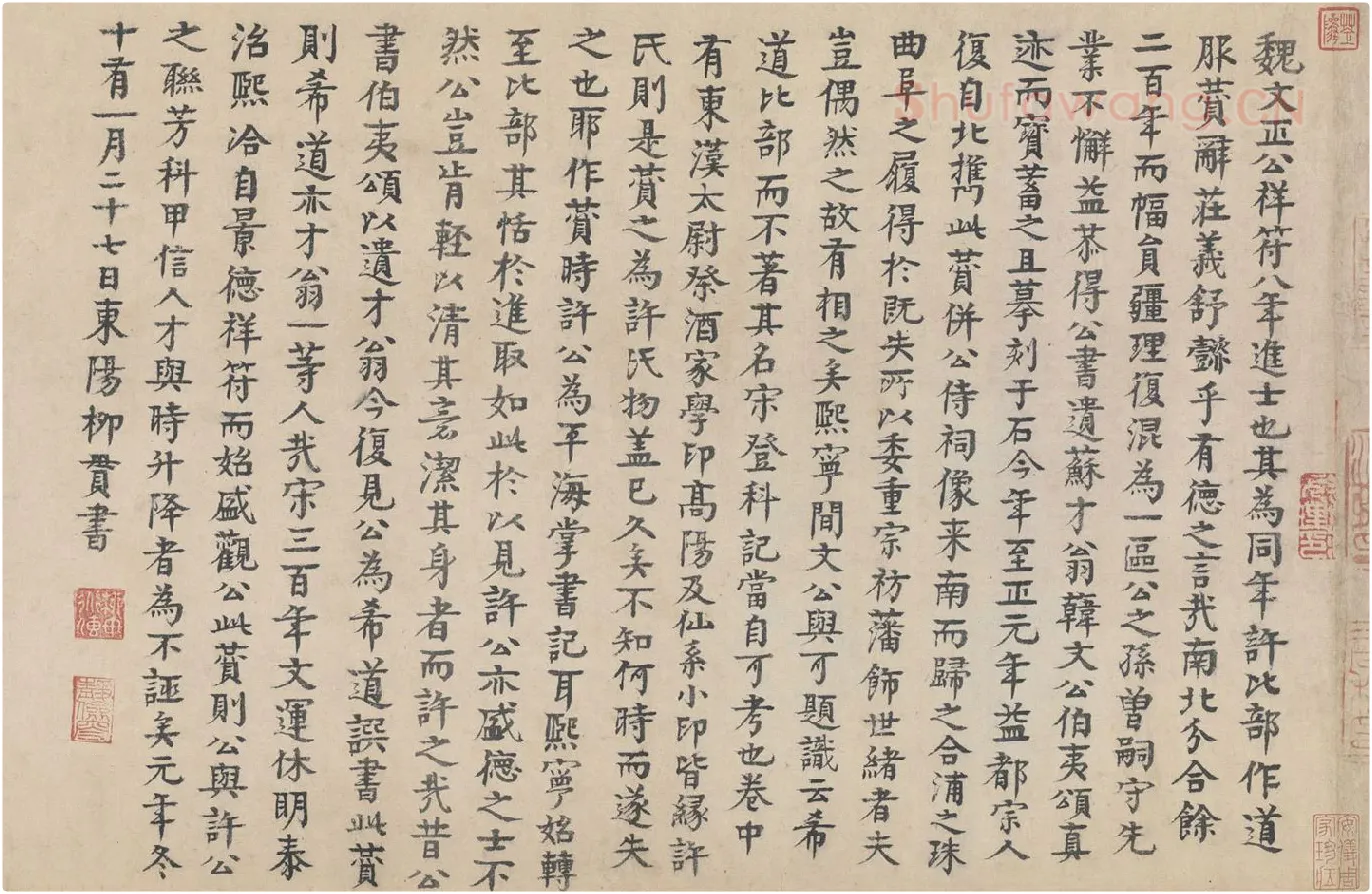 魏文正公祥符八年進士也其為同年許比部作道
服贊辭莊義舒懿乎有德之言哉南北分合餘
二百年而幅員疆理復混為一區公之孫曾嗣守先
業不懈益恭得公書遺蘇才翁韓文公伯夷頌真
迹而寶蓄之且摹刻于石今年至正元年益都宗人
復自北携此贊併公侍祠像来南而歸之合浦之珠
曲阜之履得於既失所以委重宗祊藩飾世緒者夫
豈偶然之故有相之矣熙寧間文公與可題識云希
道比部而不著其名宋登科記當自可考也卷中
有東漢太尉祭酒家學印高陽及仙系小印皆緣許
氏則是贊之為許氏物盖已久矣不知何時而遂失
之也耶作贊時許公為平海掌書記耳熙寧始轉
至比部其恬於進取如此於以見許公亦盛德之士不
然公豈肯輕以清其意潔其身者而許之哉昔公
書伯夷頌以遺才翁今復見公為希道譔書此贊
則希道亦才翁一等人哉宋三百年文運休明泰
治熙洽自景德祥符而始盛觀公此贊則公與許公
之聯芳科甲信人才與時升降者為不誣矣元年冬
十有一月二十七日東陽柳貫書
Shufawang.CN